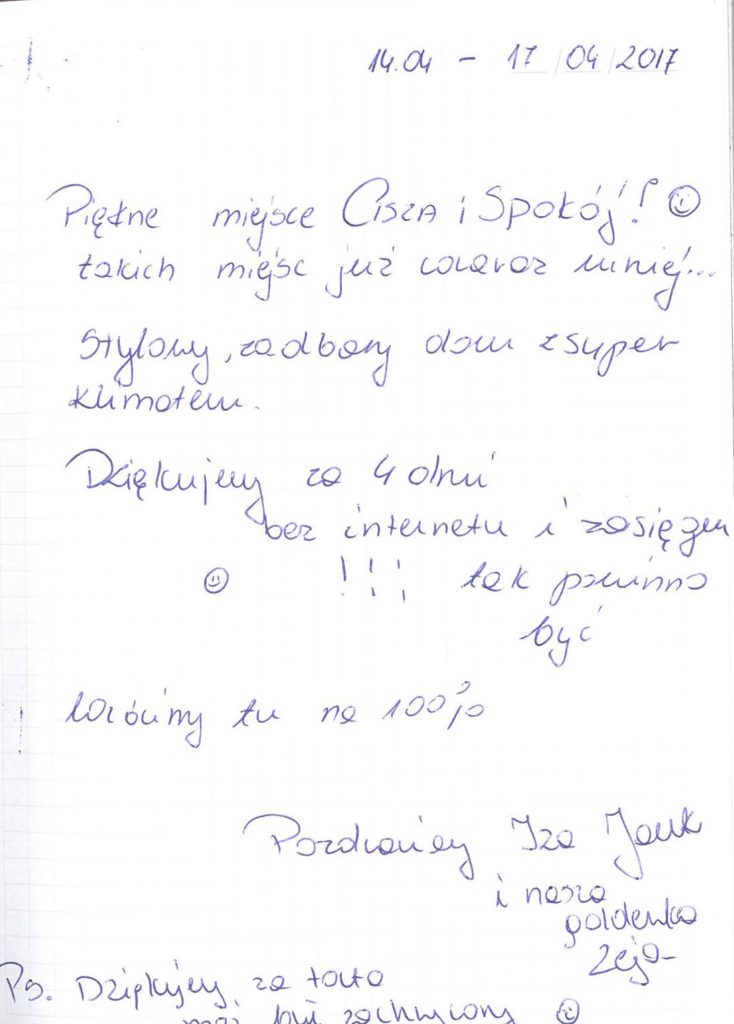 14.04 - 17/04/2017
Piękne miejsce Cisza i Spokój! ☺
takich miejsc już coraz mniej...
Stylowy, zadbany dom z super
klimatem.
Dziękujemy za 4 dni
bez internetu i zasięgu
☺ !!! tak powinno
być
Wrócimy tu na 100%
Pozdrawiamy Iza Jarek
i nasza
goldenka
Zeja
Ps. Dziękujemy za tarta
był zachwycony ☺